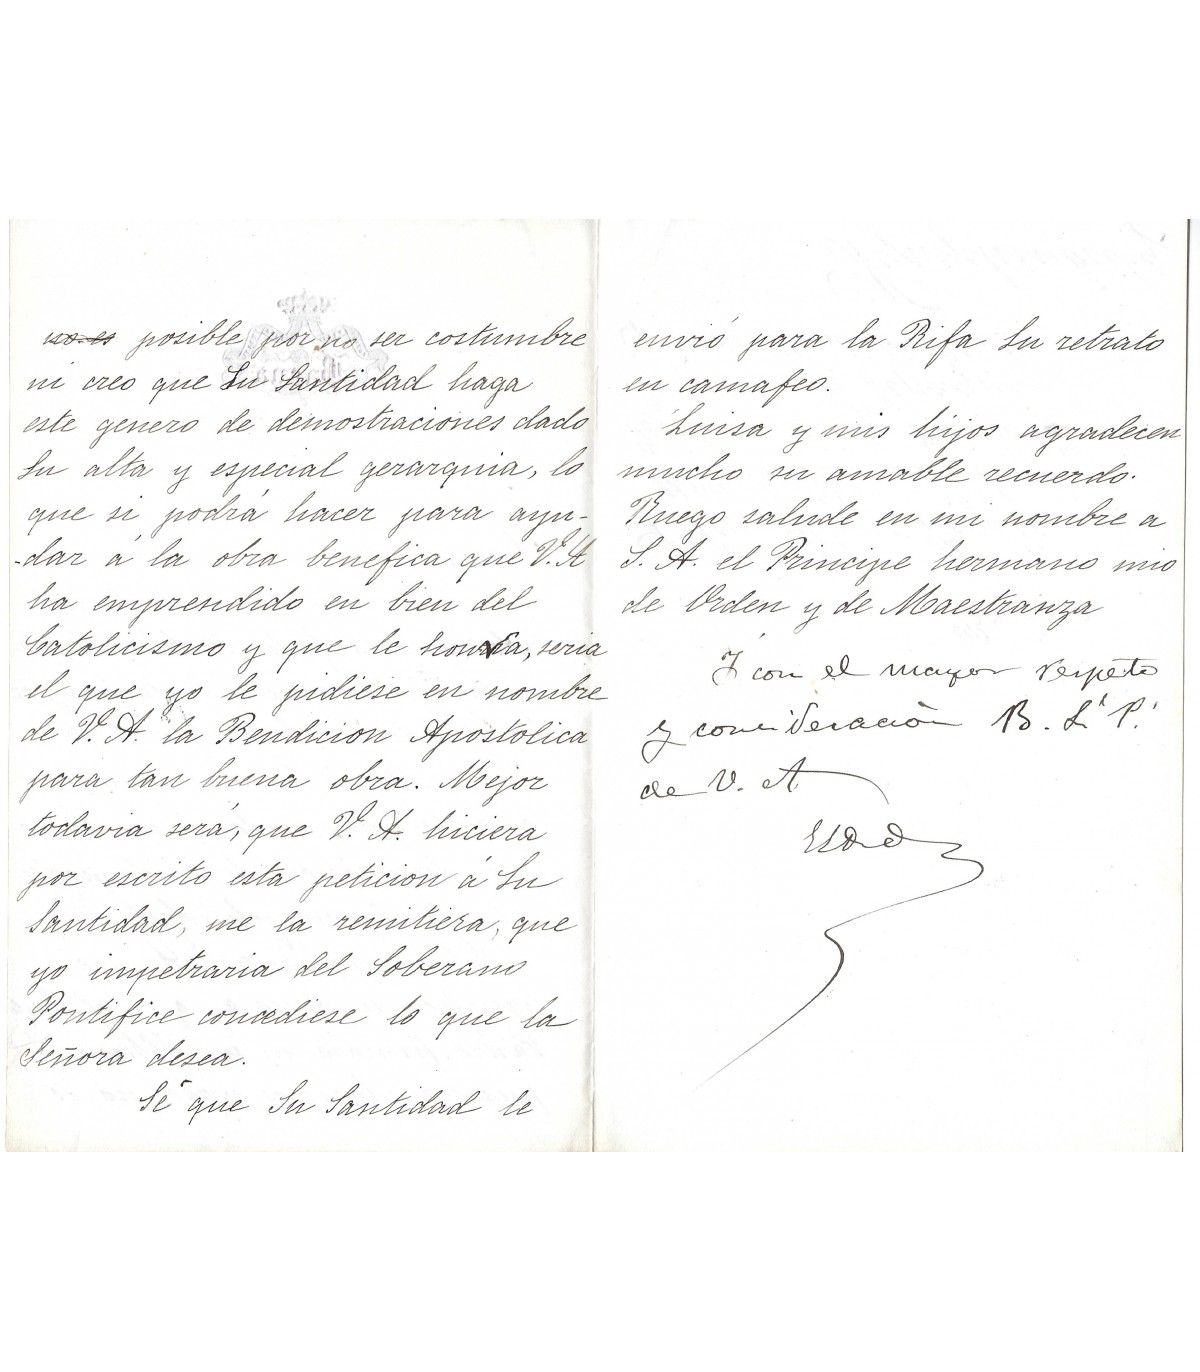 ~~no es~~ posible por no ser costumbre
ni creo que Su Santidad haga
este genero de demostraciones dado
Su alta y especial gerarquia, lo
que si podrá hacer para ayu-
-dar á la obra benefica que V. A
ha emprendido en bien del
Catolicismo y que le honra, seria
el que yo le pidiese en nombre
de V. A. la Bendicion Apostolica
para tan buena obra. Mejor
todavia será, que V. A. hiciera
por escrito esta peticion á Su
Santidad, me la remitiera, que
yo impetraria del Soberano
Pontifice concediese lo que la
Señora desea.
Sé que Su Santidad le
envió para la Rifa Su retrato
en camafeo.
Luisa y mis hijos agradecen
mucho su amable recuerdo.
Ruego salude en mi nombre a
S. A. el Principe hermano mio
de Orden y de Maestranza
Y con el mayor respeto
y consideración B. Ls Ps
de V. A